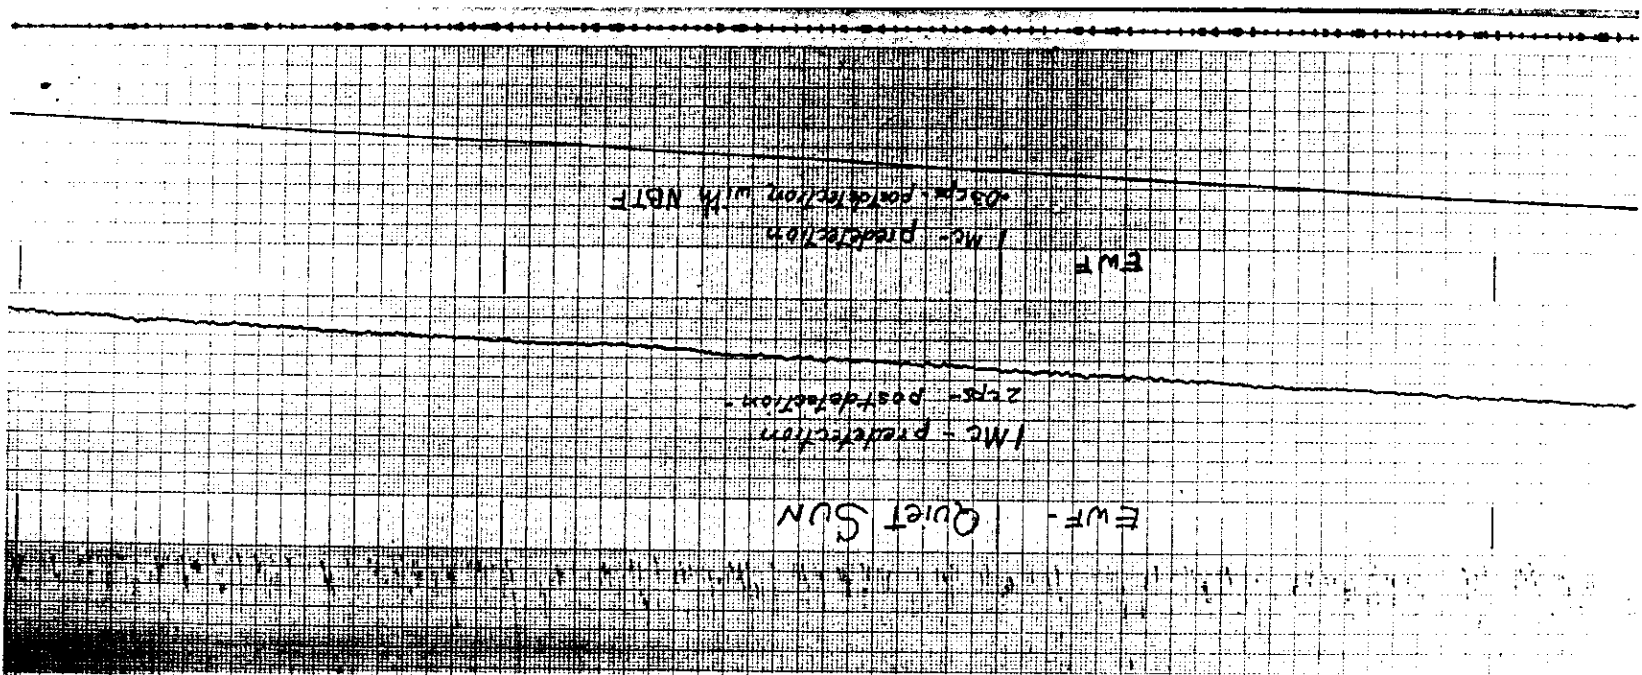 EWF - QUIET SUN
1 Mc - predetection
2 cps - postdetection -
EWF
1 Mc - predetection
.03 cps - postdetection with NBTF